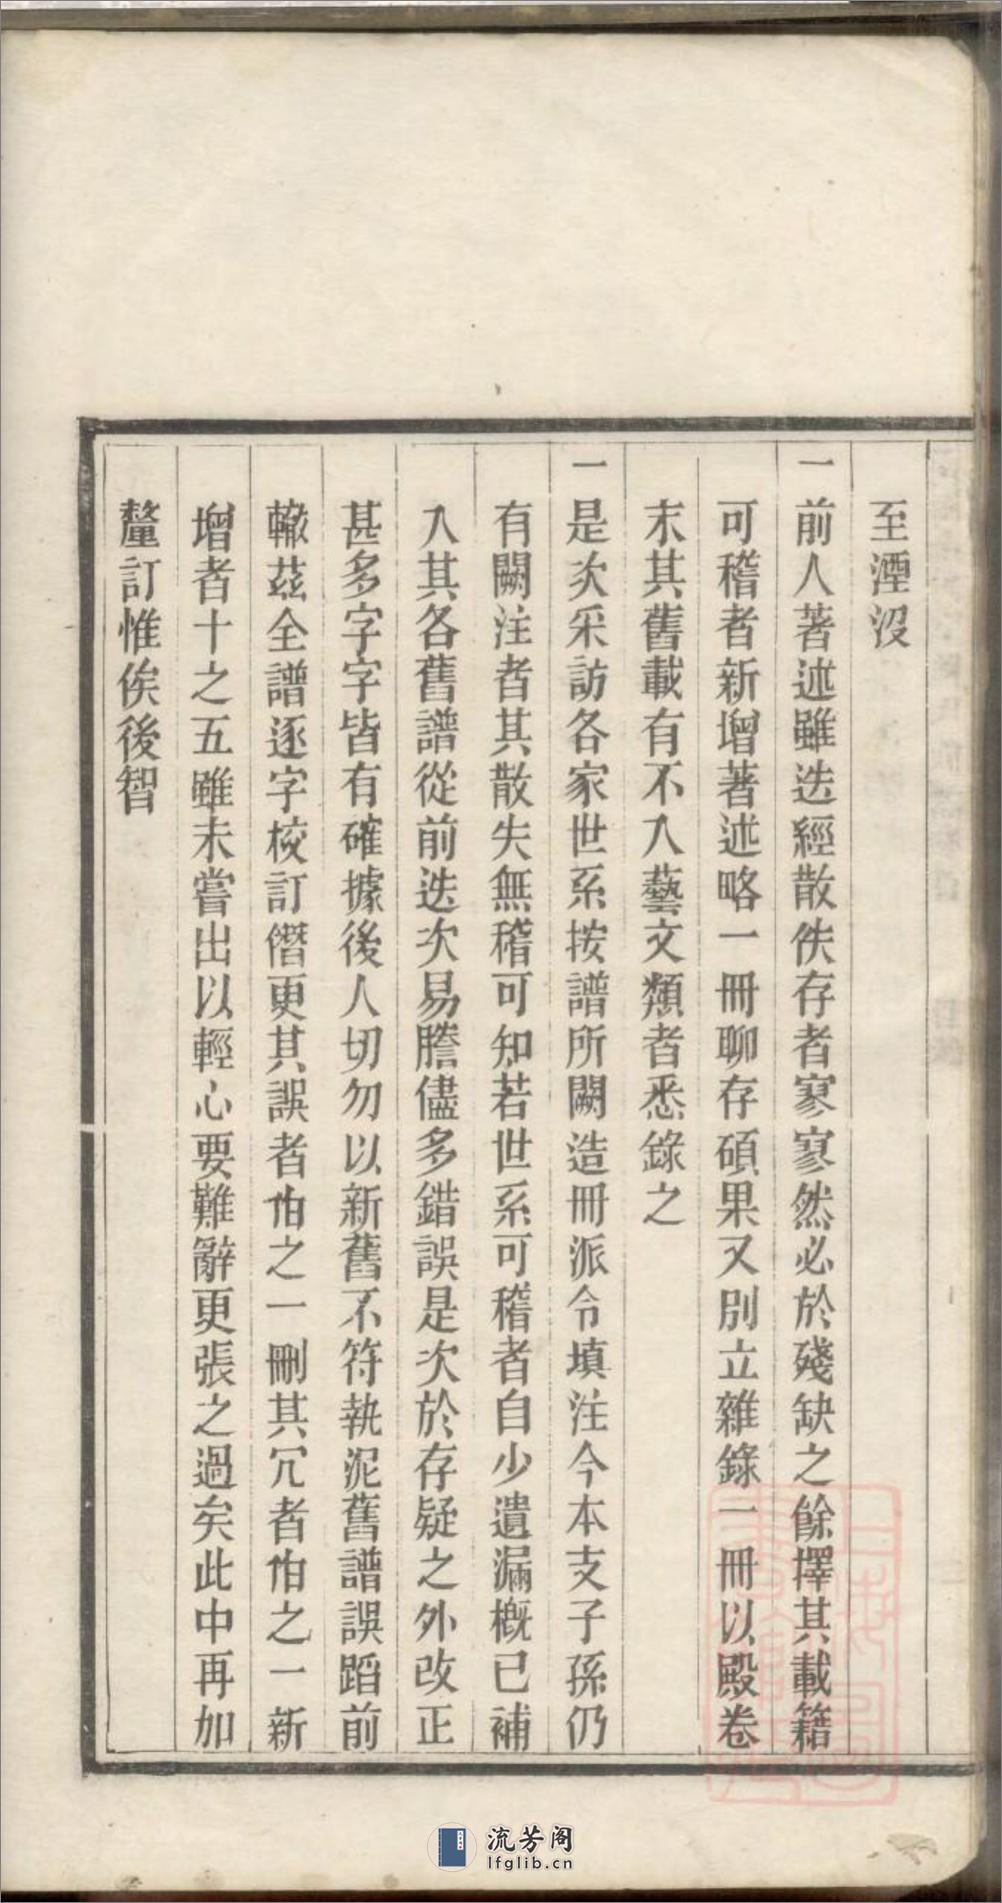 至湮沒
一前人著述雖迭經散佚存者寥寥然必於殘缺之餘擇其載籍
可稽者新增著述略一冊聊存碩果又別立雜錄一冊以殿卷
末其舊載有不入藝文類者悉錄之
一是次采訪各家世系按譜所闕造冊派令填注今本支子孫仍
有闕注者其散失無稽可知若世系可稽者自少遺漏概已補
入其各舊譜從前迭次易謄儘多錯誤是次於存疑之外改正
甚多字字皆有確據後人切勿以新舊不符執泥舊譜誤蹈前
轍茲全譜逐字校訂僭更其誤者伯之一刪其冗者伯之一新
增者十之五雖未嘗出以輕心要難辭更張之過矣此中再加
釐訂惟俟後智
流芳阁
lfglib.cn